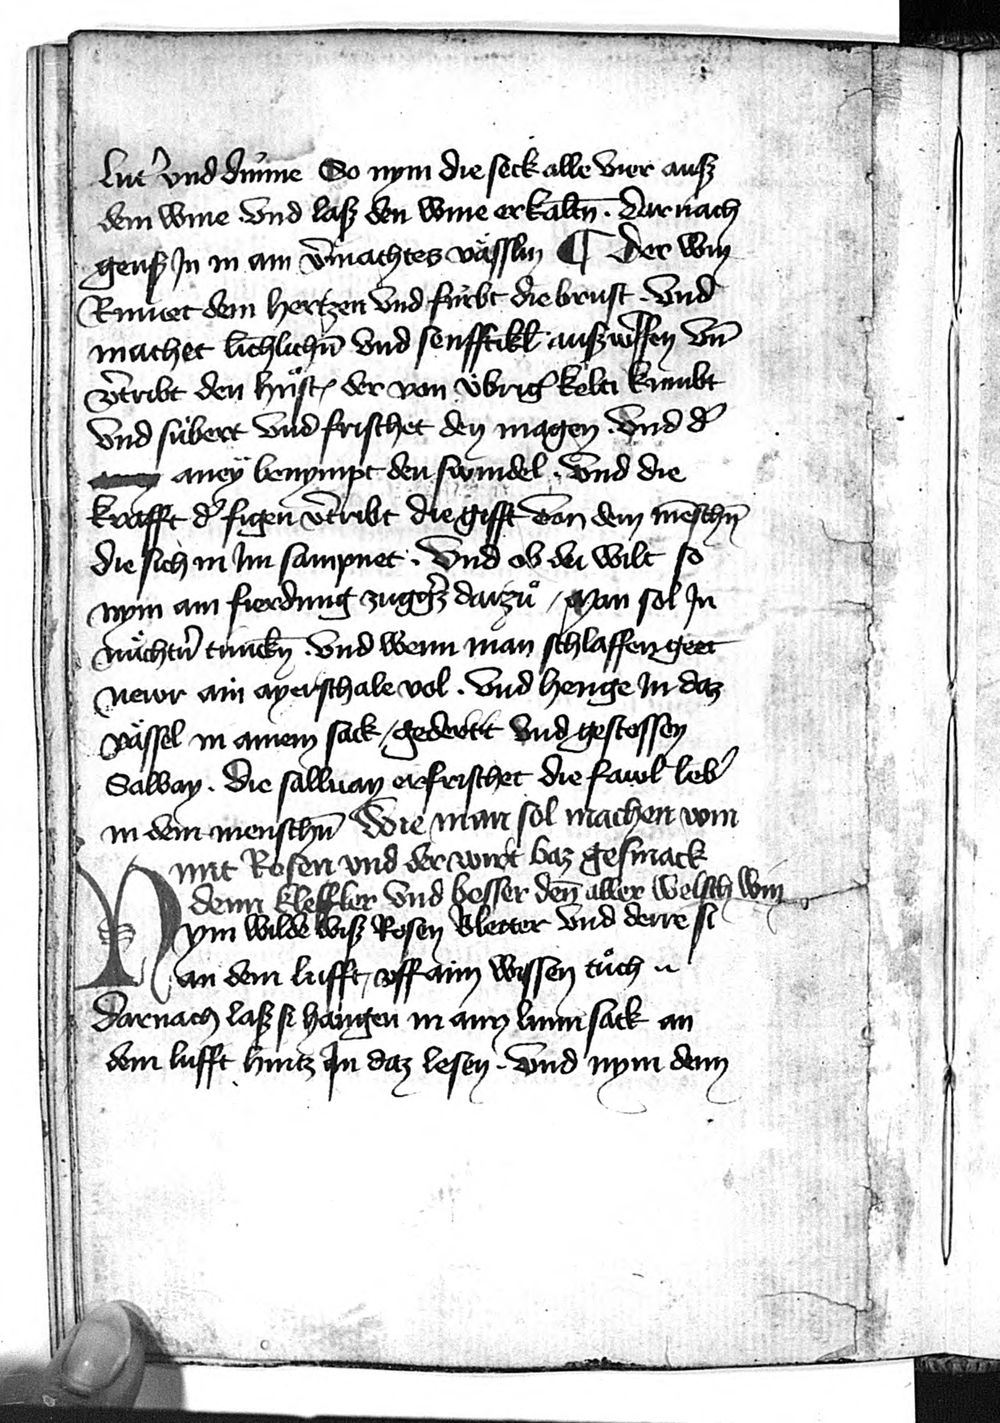 lut̓ vnd dünne So nym die seck alle vier ausz
dem wine vnd lasz den wine erkaltn̄ . darnach
geusz Jn in ain v̄machtes väßlin ¶ Der win
Rimet dem hertzen vnd fürbt die brust . vnd
machet lichlichn̄ vnd senfftikl̄ auszwerffen vn̄
v̄tribt den hůst / der von übrig̓ kelti kumbt
vnd sübert vnd frischet den magen . vnd d̓
aney benympt den swindel . vnd die
krafft d̓ figen v̄tribt die gifft von dem menschn̄
die sich in Im sampnet . vnd ob du wilt so
nym ain fierdung zugg̓z darzů / Man sol Jn
nüchtn̓ trinckn̄ . vnd wenn man schlaffen geet
newr ain ayerschale vol . vnd henge In daz
vässel in ainem sack / gederrt vnd gestossen
Salvay . die sallvay erfrischet die fawl̓ leb̓
in dem menschn̄ Wie man sol machen win
mit Rosen vnd der wirt baz gesmack
denn kleffler vnd besser den̄ aller welsch win
Nym wilde wisz Rosen bletter vnd derre si
an dem lufft / vff aim wissen tůch
darnach lasz si hangen in aim linin sack an
dem lufft hintz Jn daz lesen . vnd nym denn